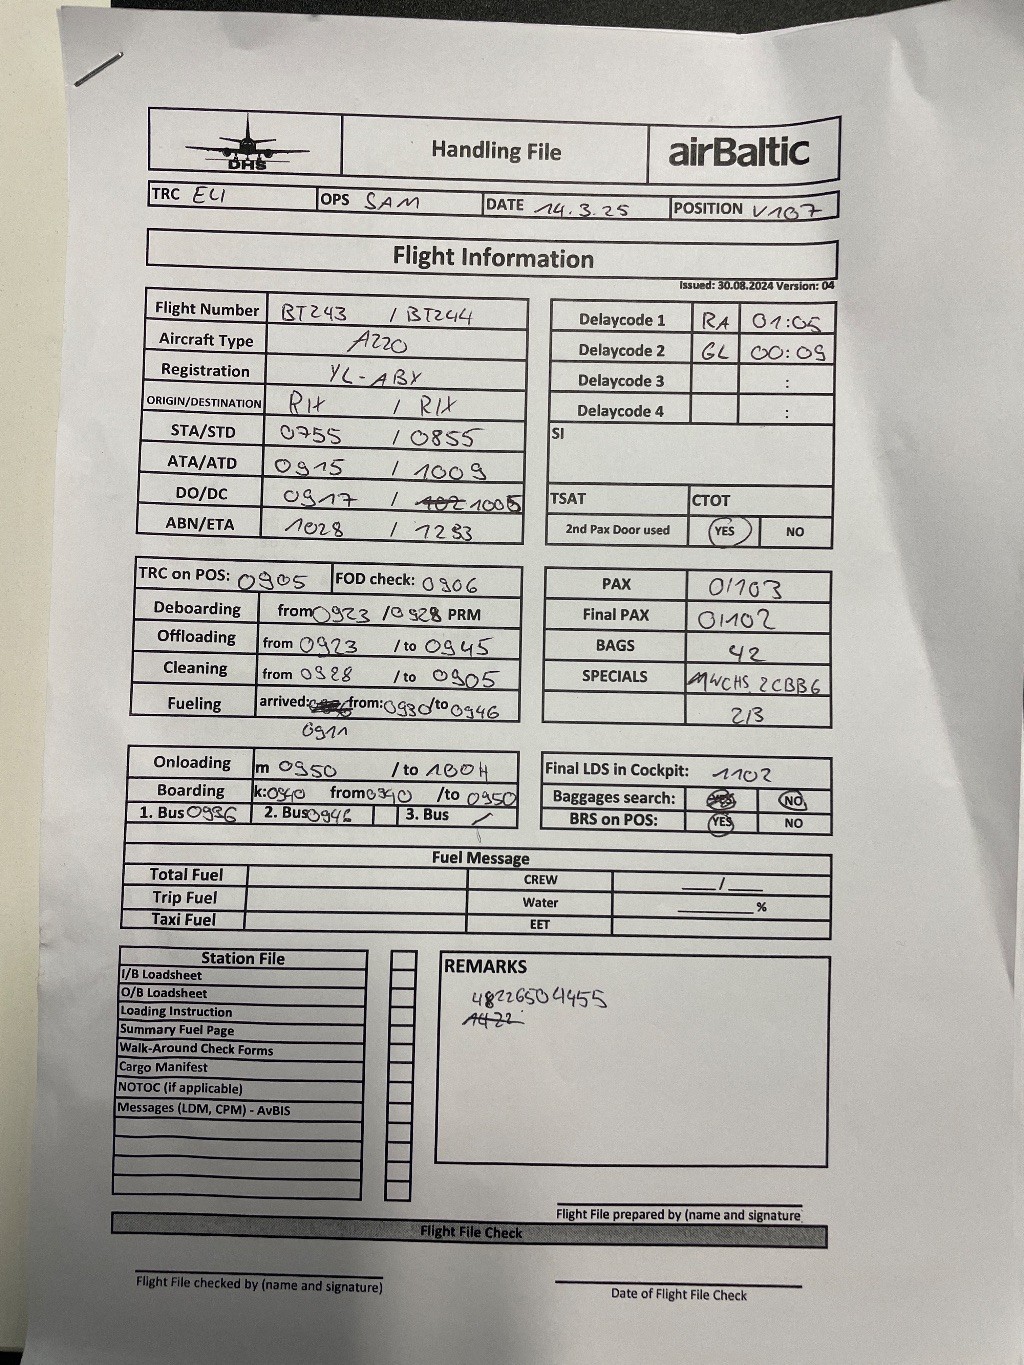 DHS
Handling File
airBaltic
TRC ELI OPS SAM DATE 14.3.25 POSITION V107
Flight Information
Issued: 30.08.2024 Version: 04
Flight Number BT243 / BT244
Aircraft Type A220
Registration YL-ABX
ORIGIN/DESTINATION RIX / RIX
STA/STD 0755 / 0855
ATA/ATD 0915 / 1009
DO/DC 0917 / 1005
ABN/ETA 1028 / 1253
Delaycode 1 RA 01:05
Delaycode 2 GL 00:09
Delaycode 3 :
Delaycode 4 :
SI
TSAT CTOT
2nd Pax Door used YES NO
TRC on POS: 0905 FOD check: 0906
Deboarding from 0923 / 0928 PRM
Offloading from 0923 / to 0945
Cleaning from 0928 / to 0905
Fueling arrived: from: 0930 /to 0946
0911
PAX 01103
Final PAX 01102
BAGS 42
SPECIALS MWCHS 2CBBG
2/3
Onloading m 0950 / to 100H
Boarding k: 0940 from 0940 /to 0950
1. Bus 0936 2. Bus 0946 3. Bus /
Final LDS in Cockpit: 1102
Baggages search: YES NO
BRS on POS: YES NO
Fuel Message
Total Fuel CREW ___/___
Trip Fuel Water ______ %
Taxi Fuel EET
Station File
I/B Loadsheet
O/B Loadsheet
Loading Instruction
Summary Fuel Page
Walk-Around Check Forms
Cargo Manifest
NOTOC (if applicable)
Messages (LDM, CPM) - AvBIS
REMARKS
48226504455
Flight File prepared by (name and signature
Flight File Check
Flight File checked by (name and signature)
Date of Flight File Check